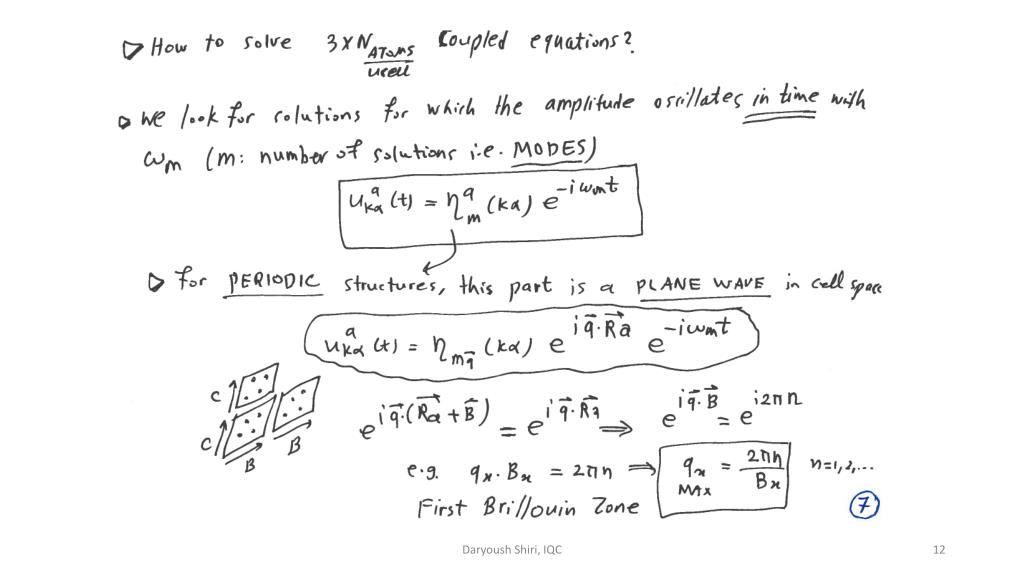 ▷ How to solve 3×N_Atoms/ucell Coupled equations?
▷ We look for solutions for which the amplitude oscillates in time with
ω_m (m: number of solutions i.e. MODES)
u_kα^a (t) = η_m^a (kα) e^{-iω_m t}
▷ For PERIODIC structures, this part is a PLANE WAVE in cell space
u_kα^a (t) = η_{m q⃗} (kα) e^{i q⃗·R⃗a} e^{-iω_m t}
C
C
B
B
e^{i q⃗·(R⃗a + B⃗)} = e^{i q⃗·R⃗a} ⇒ e^{i q⃗·B⃗} = e^{i2πn}
e.g. q_x·B_x = 2πn ⇒ q_x MAX = 2πn/B_x n=1,2,...
First Brillouin Zone
7
Daryoush Shiri, IQC
12